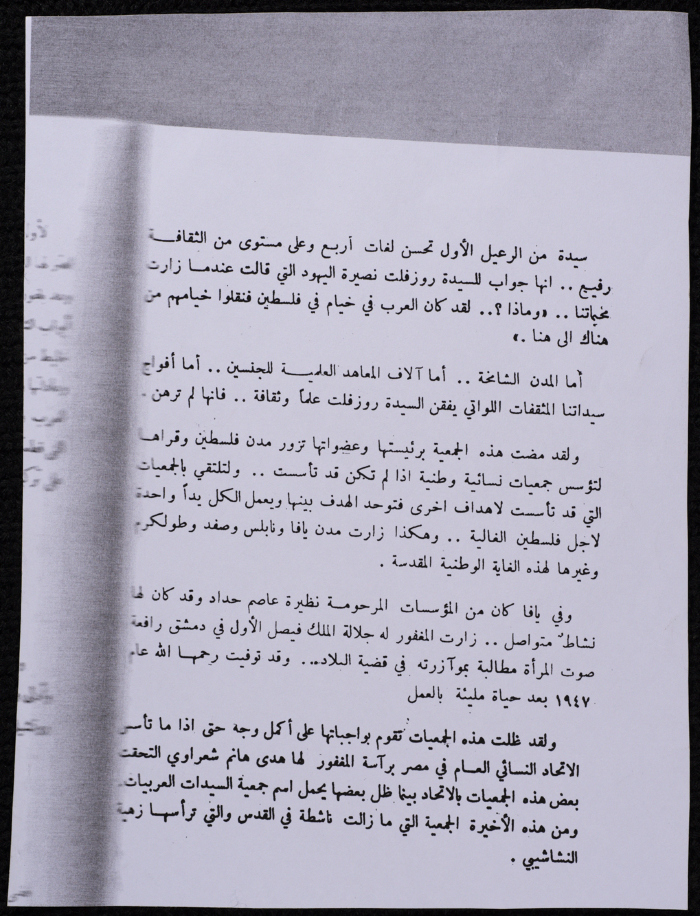 سيدة من الرعيل الأول تحسن لغات أربع وعلى مستوى من الثقافة
رفيع .. انها جواب للسيدة روزفلت نصيرة اليهود التي قالت عندما زارت
مخيماتنا .. «وماذا ؟.. لقد كان العرب في خيام في فلسطين فنقلوا خيامهم من
هناك الى هنا .»
أما المدن الشامخة .. أما آلاف المعاهد العلمية للجنسين .. أما أفواج
سيداتنا المثقفات اللواتي يفقن السيدة روزفلت علماً وثقافة .. فانها لم ترهن .
ولقد مضت هذه الجمعية برئيستها وعضواتها تزور مدن فلسطين وقراها
لتؤسس جمعيات نسائية وطنية اذا لم تكن قد تأسست .. ولتلتقي بالجمعيات
التي قد تأسست لاهداف اخرى فتوحد الهدف بينها ويعمل الكل يداً واحدة
لاجل فلسطين الغالية .. وهكذا زارت مدن يافا ونابلس وصفد وطولكرم
وغيرها لهذه الغاية الوطنية المقدسة .
وفي يافا كان من المؤسسات المرحومة نظيرة عاصم حداد وقد كان لها
نشاطٌ متواصل .. زارت المغفور له جلالة الملك فيصل الأول في دمشق رافعة
صوت المرأة مطالبة بموآزرته في قضية البلاد... وقد توفيت رحمها الله عام
١٩٤٧ بعد حياة مليئة بالعمل
ولقد ظلت هذه الجمعيات تقوم بواجباتها على أكمل وجه حتى اذا ما تأسس
الاتحاد النسائي العام في مصر برآسة المغفور لها هدى هانم شعراوي التحقت
بعض هذه الجمعيات بالاتحاد بينما ظل بعضها يحمل اسم جمعية السيدات العربيات.
ومن هذه الأخيرة الجمعية التي ما زالت ناشطة في القدس والتي ترأسها زهية
النشاشيبي .